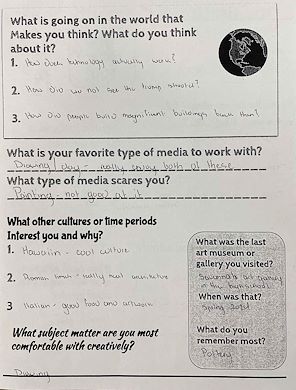 What is going on in the world that
Makes you think? What do you think
about it?
1. How does technology actually work?
2. How did we not see the trump shooter?
3. How did people build magnificent buildings back then?
What is your favorite type of media to work with?
Drawing/ clay - really enjoy both of these
What type of media scares you?
Painting - not good at it
What other cultures or time periods
Interest you and why?
1. Hawaiin - cool culture
2. Roman times - really neat architecture
3 Italian - good food and artwork
What subject matter are you most
comfortable with creatively?
Drawing
What was the last
art museum or
gallery you visited?
Savannah's art
in the
When was that?
Spring 2024
What do you
remember most?
Pottery